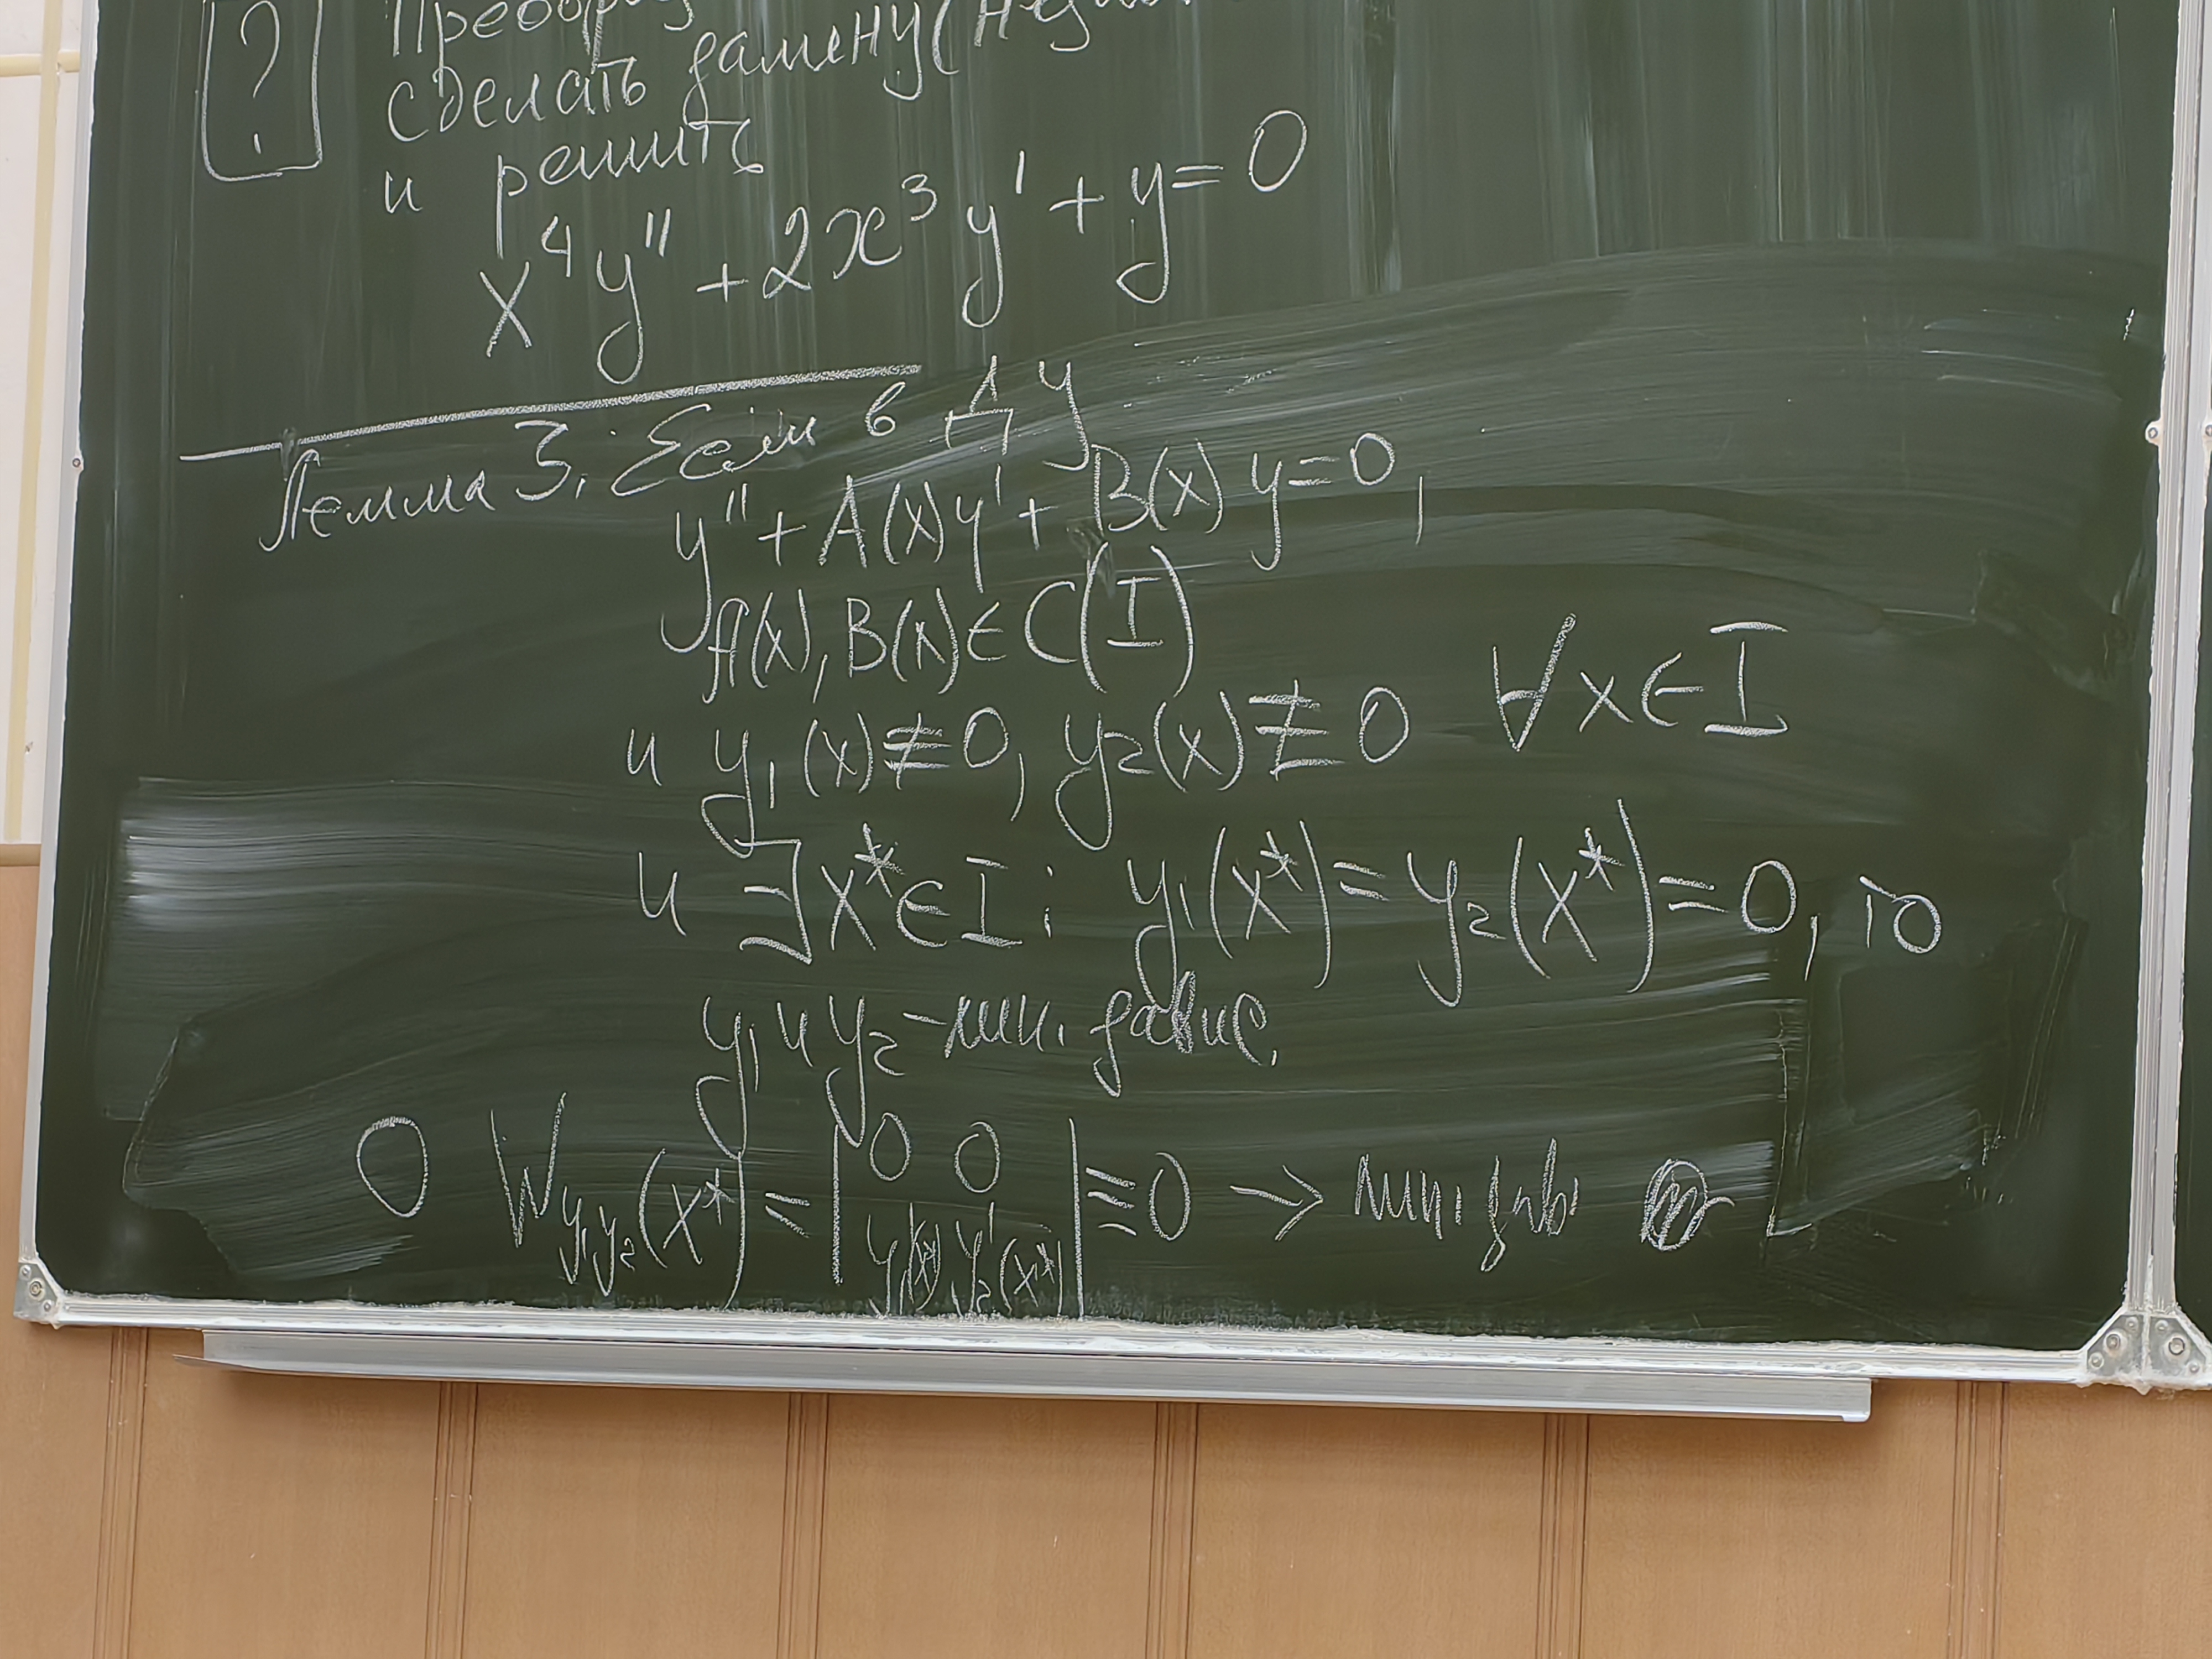 ?
сделать замену (
и решить
x⁴y'' + 2x³y' + y = 0
Лемма 3. Если в ДУ
y'' + A(x)y' + B(x)y = 0,
A(x), B(x) ∈ C(I)
и y₁(x) ≢ 0, y₂(x) ≢ 0 ∀x ∈ I
и ∃x* ∈ I: y₁(x*) = y₂(x*) = 0, то
y₁ и y₂ - лин. завис.
O W_{y₁y₂}(x*) = |0 0; y₁'(x*) y₂'(x*)| ≡ 0 → лин. зав.